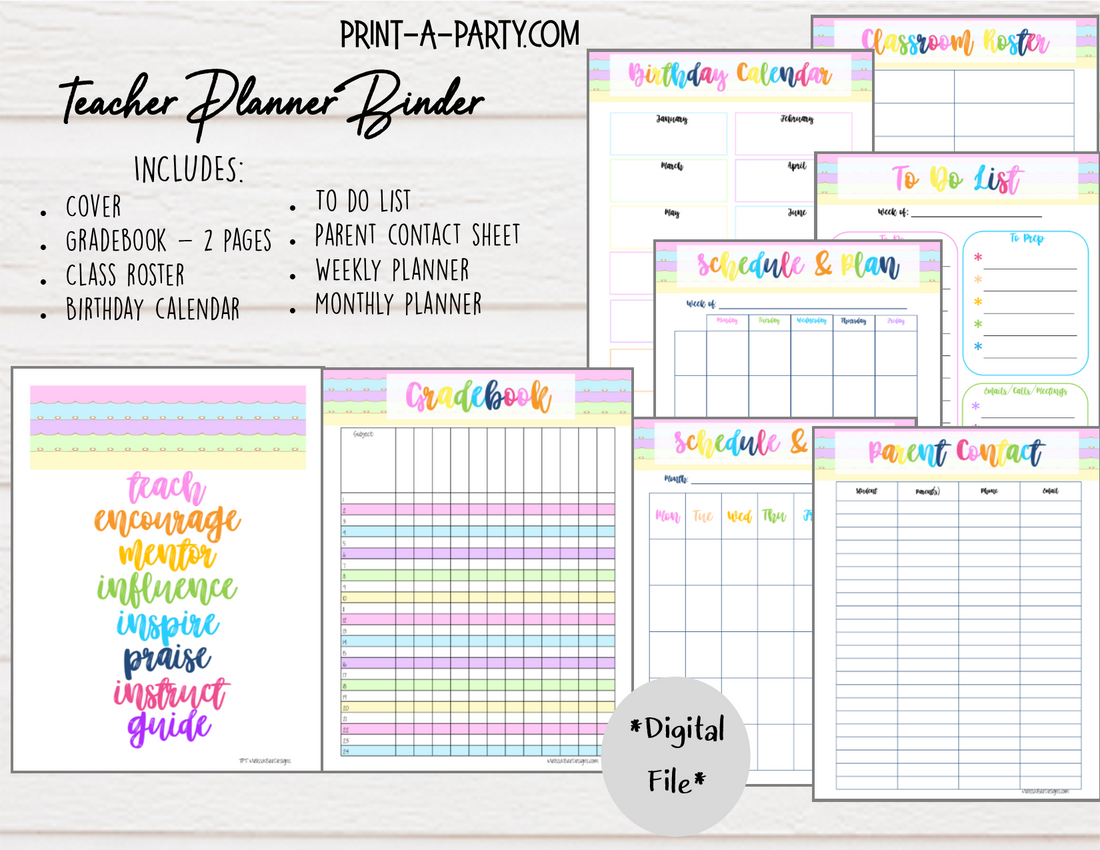 PRINT-A-PARTY.COM
Teacher Planner Binder
INCLUDES:
• COVER
• GRADEBOOK – 2 PAGES
• CLASS ROSTER
• BIRTHDAY CALENDAR
• TO DO LIST
• PARENT CONTACT SHEET
• WEEKLY PLANNER
• MONTHLY PLANNER
Classroom Roster
Birthday Calendar
January
February
March
April
May
June
To Do List
Week of:
To Do
To Prep
*
*
*
*
*
Emails/Calls/Meetings
*
Schedule & Plan
Week of:
Monday
Tuesday
Wednesday
Thursday
Friday
teach
encourage
mentor
influence
inspire
praise
instruct
guide
Gradebook
Subject:
1
2
3
4
5
6
7
8
9
10
11
12
13
14
15
16
17
18
19
20
21
22
23
24
Schedule &
Month:
Mon Tue Wed Thu
Parent Contact
Student Parent(s) Phone Email
*Digital
File*